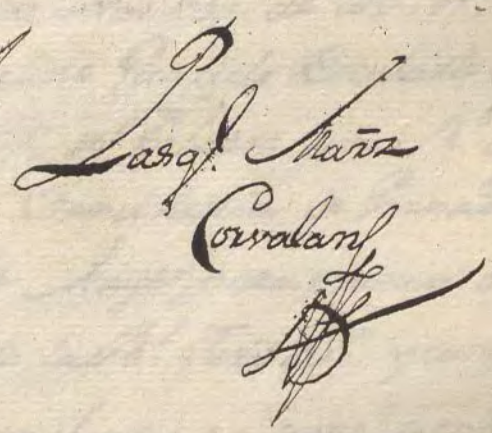 Pasql Marñz
Corvalan